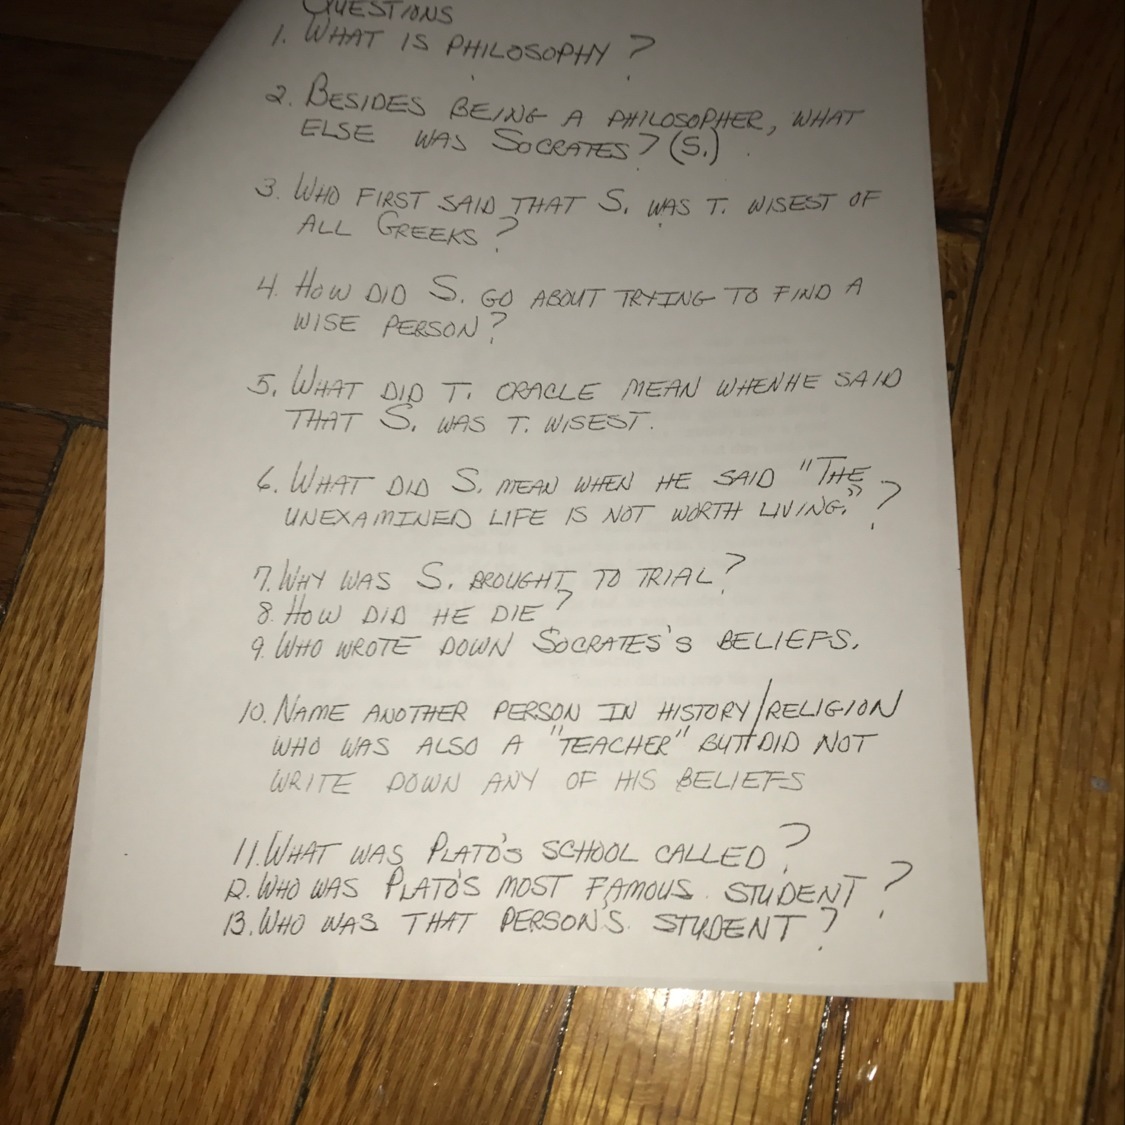 QUESTIONS
1. WHAT IS PHILOSOPHY?
2. BESIDES BEING A PHILOSOPHER, WHAT
ELSE WAS SOCRATES? (S.)
3. WHO FIRST SAID THAT S. WAS T. WISEST OF
ALL GREEKS?
4. HOW DID S. GO ABOUT TRYING TO FIND A
WISE PERSON?
5. WHAT DID T. ORACLE MEAN WHEN HE SAID
THAT S. WAS T. WISEST.
6. WHAT DID S. MEAN WHEN HE SAID "THE
UNEXAMINED LIFE IS NOT WORTH LIVING."?
7. WHY WAS S. BROUGHT TO TRIAL?
8. HOW DID HE DIE?
9. WHO WROTE DOWN SOCRATES'S BELIEFS.
10. NAME ANOTHER PERSON IN HISTORY/RELIGION
WHO WAS ALSO A "TEACHER" BUT DID NOT
WRITE DOWN ANY OF HIS BELIEFS
11. WHAT WAS PLATO'S SCHOOL CALLED?
12. WHO WAS PLATO'S MOST FAMOUS STUDENT?
13. WHO WAS THAT PERSON'S STUDENT?